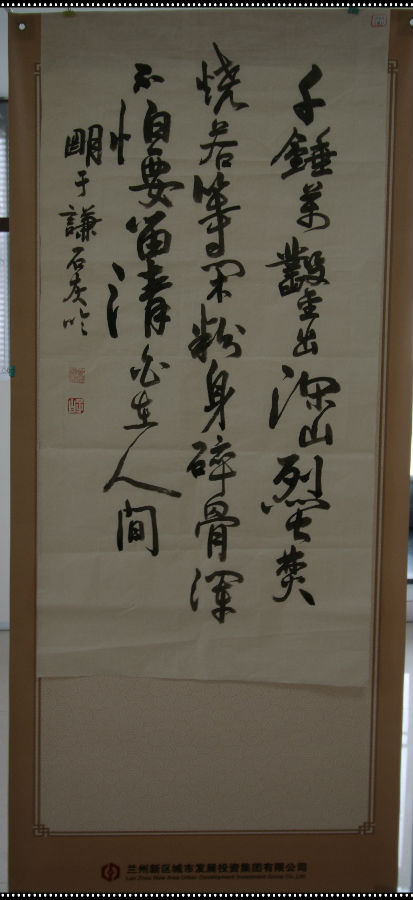 千錘萬鑿出深山烈火焚
烧若等闲粉身碎骨浑
不怕要留清白在人間
明于謙石灰吟
兰州新区城市发展投资集团有限公司
Lan Zhou New Area Urban Development Investment Group Co.,Ltd.